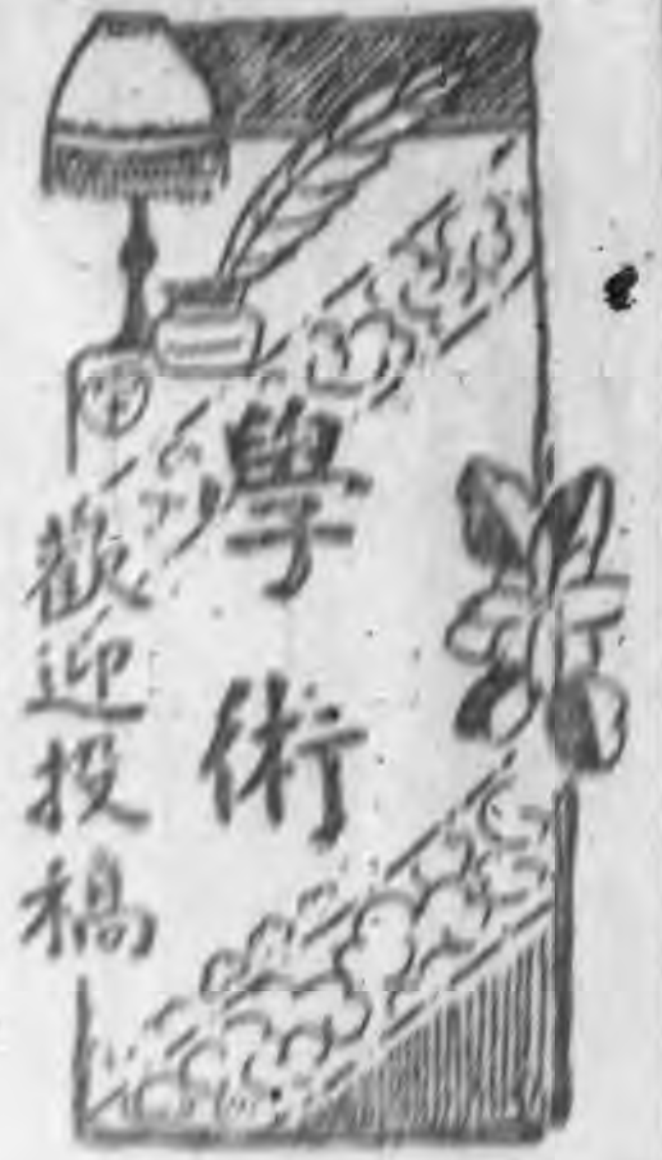 學術
歡迎投稿